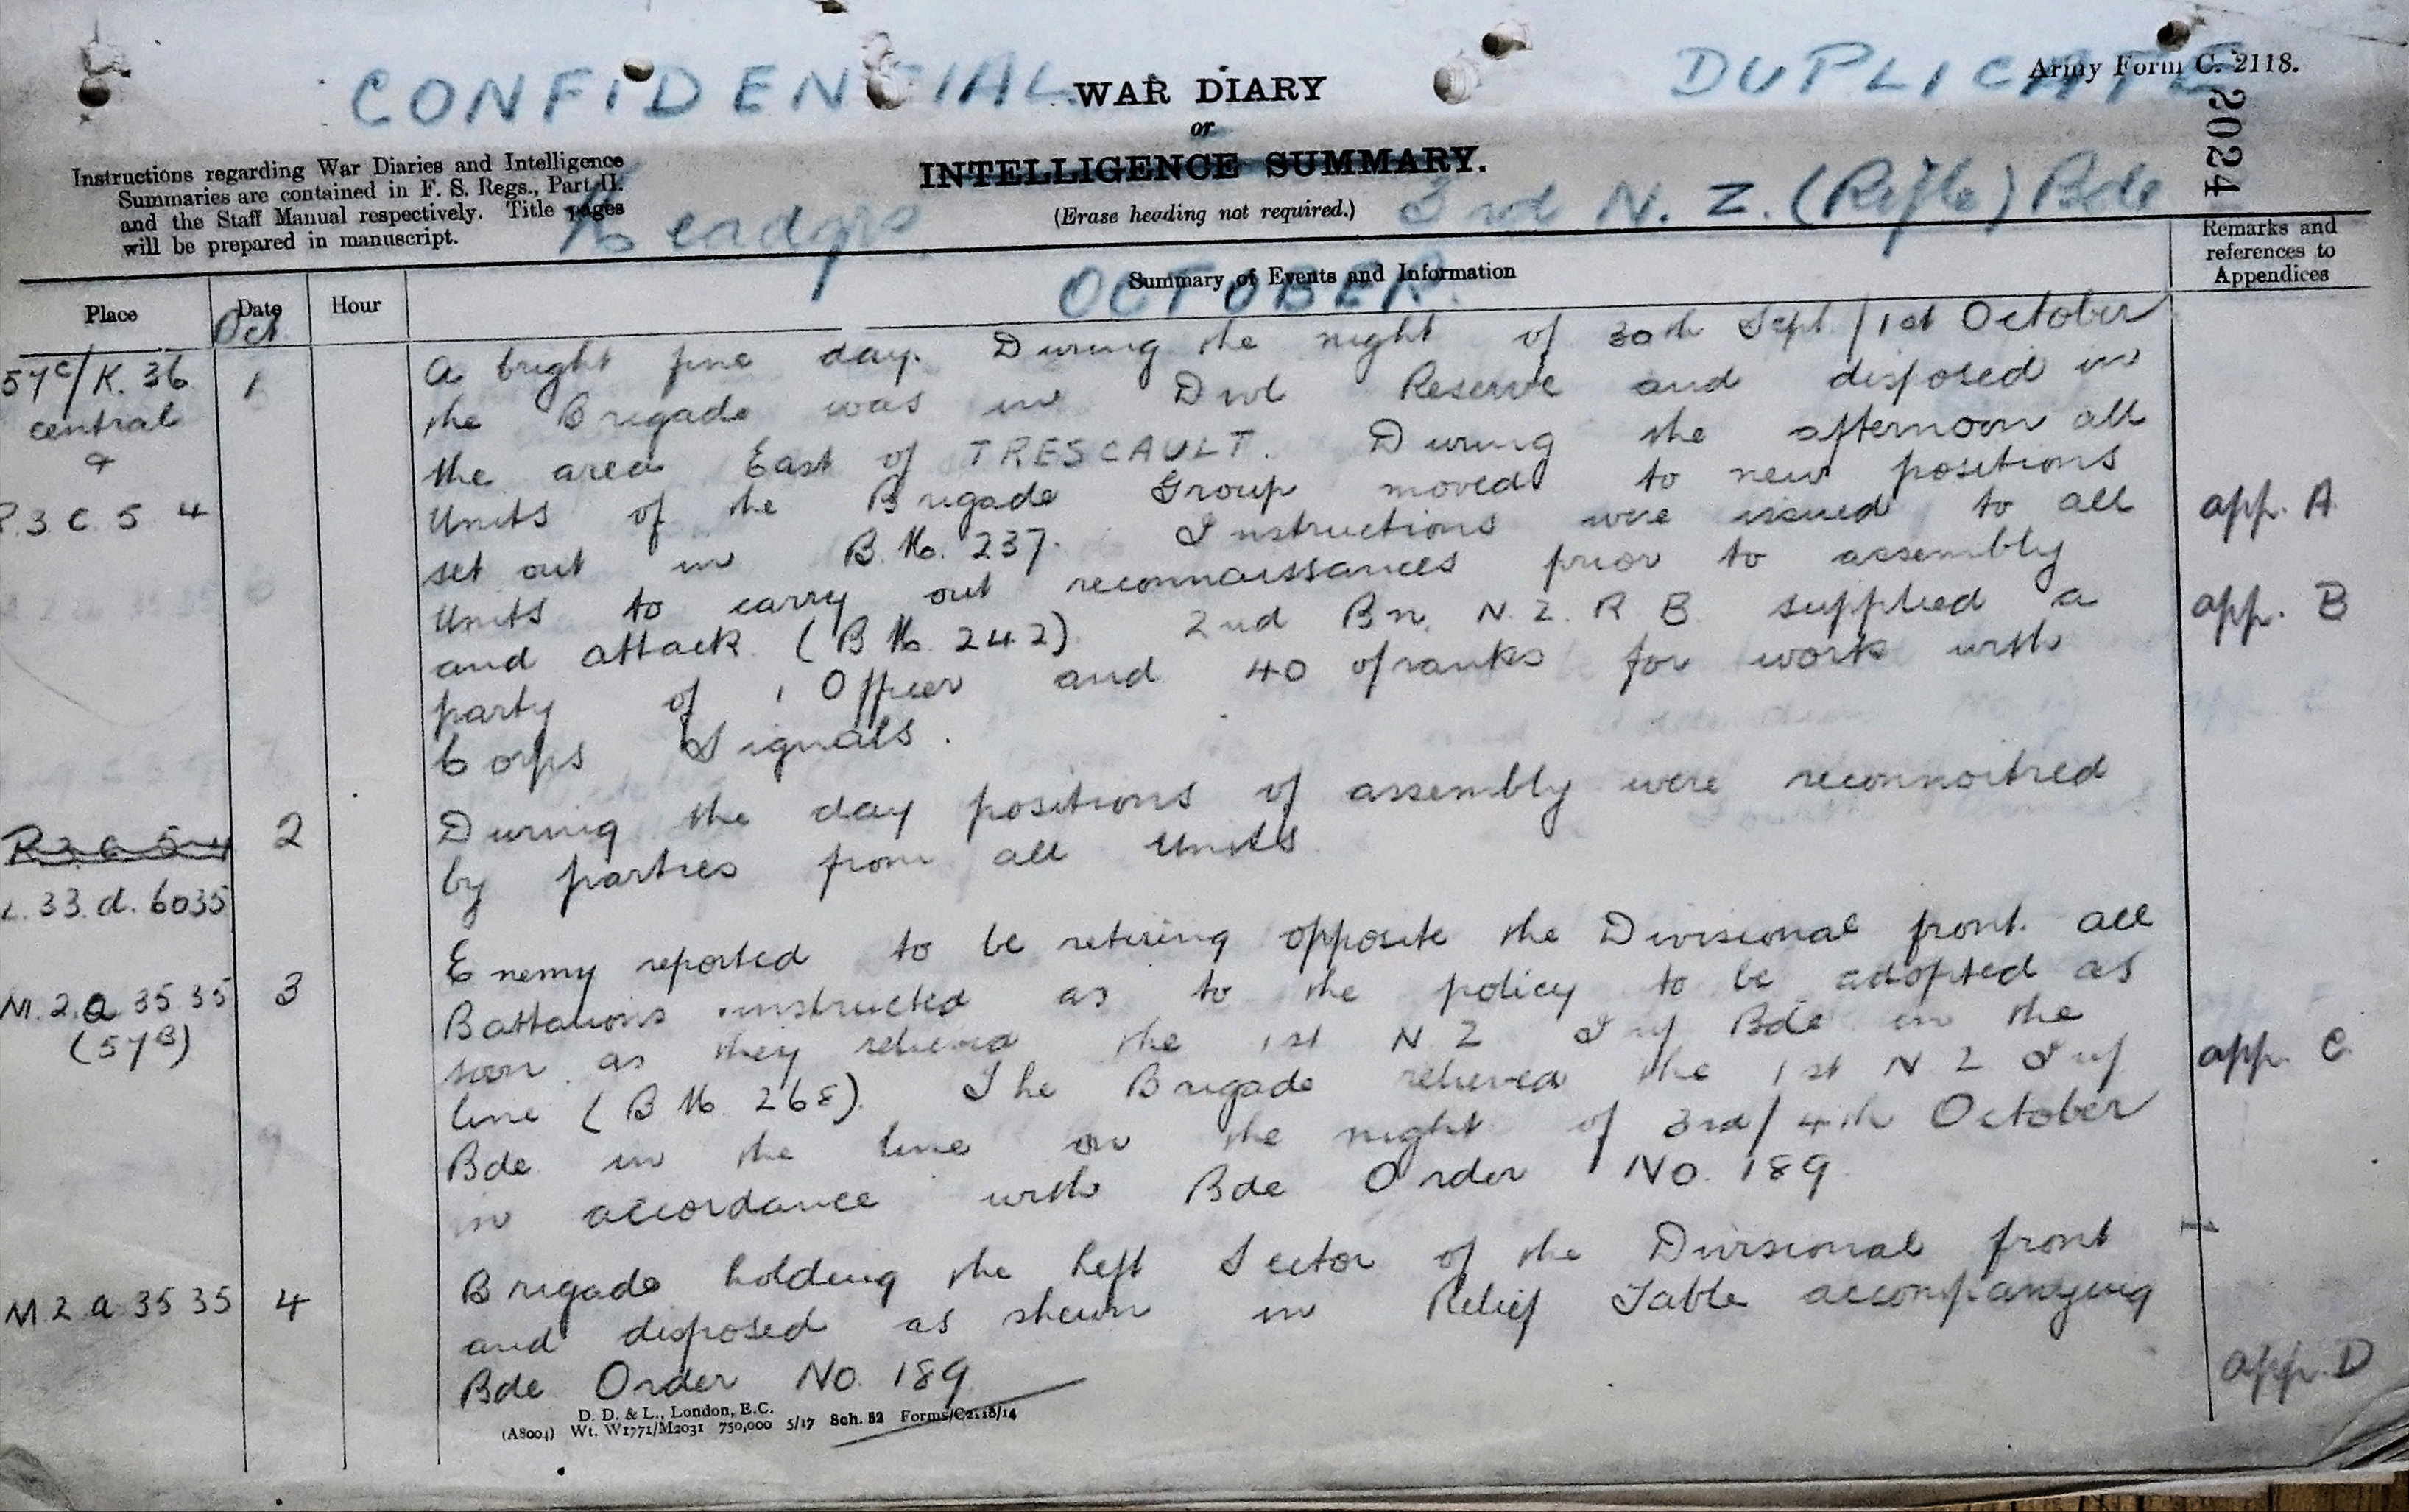 CONFIDENTIAL
DUPLICATE
Army Form C. 2118.
2024
WAR DIARY
or
INTELLIGENCE SUMMARY.
(Erase heading not required.)
Instructions regarding War Diaries and Intelligence
Summaries are contained in F. S. Regs., Part II.
and the Staff Manual respectively. Title pages
will be prepared in manuscript.
Headqrs
3rd N. Z. (Rifle) Bde
OCTOBER.
Place
Date
Hour
Summary of Events and Information
Remarks and
references to
Appendices
Oct
57c/K. 36
central
&
3 c. 5 4
1
A bright fine day. During the night of 30th Sept/1st October
the Brigade was in Divl Reserve and disposed in
the area East of TRESCAULT. During the afternoon all
Units of the Brigade Group moved to new positions
set out in B.M. 237. Instructions were issued to all
Units to carry out reconnaissances prior to assembly
and attack. (B M. 242) 2nd Bn. N. Z. R B supplied a
party of 1 Officer and 40 o/ranks for work with
Corps Signals.
app. A
app. B
R.3 c 5 4
L. 33. d. 6035
2
During the day positions of assembly were reconnoitred
by parties from all Units
M. 2. a 35 35
(57B)
3
Enemy reported to be retiring opposite the Divisional front. All
Battalions instructed as to the policy to be adopted as
soon as they relieved the 1st N Z Inf Bde in the
line (B M. 268). The Brigade relieved the 1st N Z Inf
Bde in the line on the night of 3rd/4th October
in accordance with Bde Order No. 189
app. C
M 2 a 35 35
4
Brigade holding the Left Sector of the Divisional front
and disposed as shewn in Relief Table accompanying
Bde Order No. 189
app. D
D. D. & L., London, E.C.
(A8004) Wt. W1771/M2031 750,000 5/17 Sch. 52 Forms/C2118/14